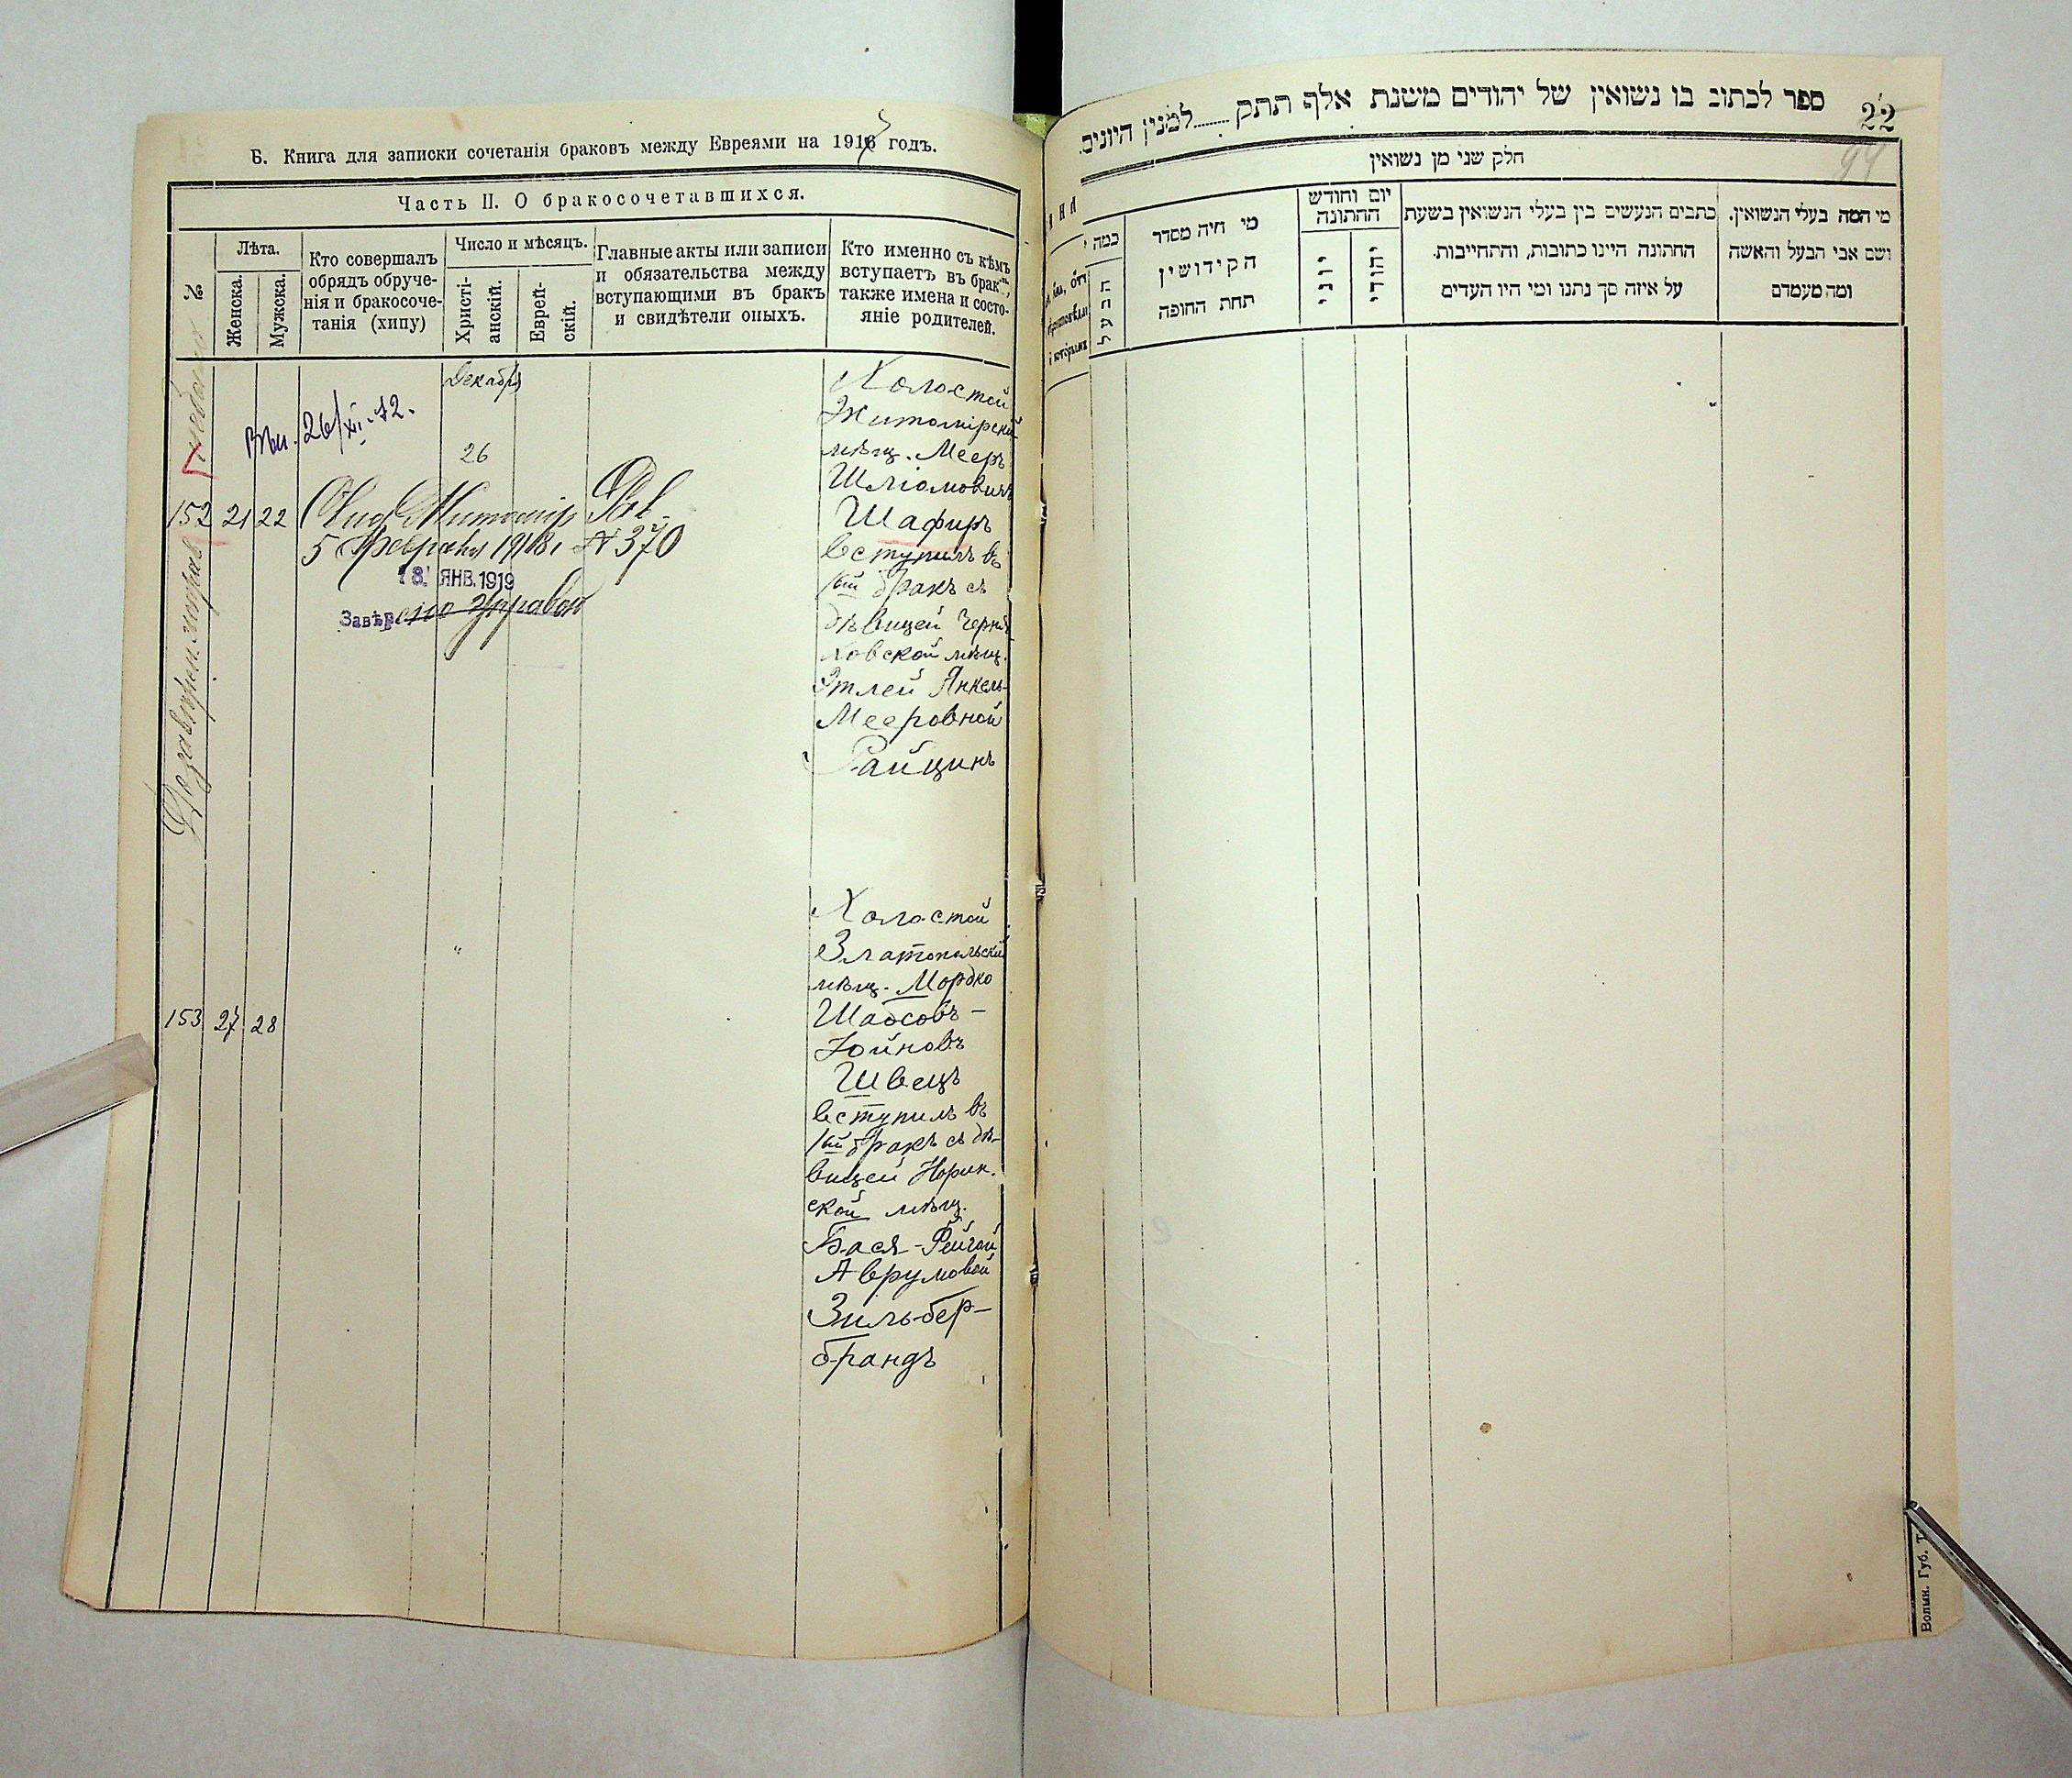 Б. Книга для записки сочетанія браковъ между Евреями на 1917 годъ.
Часть II. О бракосочетавшихся.
№
Лѣта.
Женска.
Мужска.
Кто совершалъ
обрядъ обруче-
нія и бракосоче-
танія (хипу)
Число и мѣсяцъ.
Христі-
анскій.
Еврей-
скій.
Главные акты или записи
и обязательства между
вступающими въ бракъ
и свидѣтели оныхъ.
Кто именно съ кѣмъ
вступаетъ въ бракъ,
также имена и состо-
яніе родителей.
Декабрь
26/XII-72.
26
152 21 22
5 Февраля 1918 № 370
18 ЯНВ. 1919
Завѣр
Холостой
Житомірскій
мѣщ. Мееръ
Шліомовичъ
Шафиръ
вступилъ въ
1ый бракъ съ
дѣвицей Черня
ховской мѣщ.
Этлей Янкель-
Мееровной
Райцинъ
"
153 27 28
Холостой
Златопольскій
мѣщ. Мордко
Шабсовъ-
Хойновъ
Швецъ
вступилъ въ
1ый бракъ съ дѣ-
вицей Норин.
ской мѣщ.
Бася-Фейгой
Аврумовой
Зильбер-
брандъ
ספר לכתוב בו נשואין של יהודים משנת אלף תתק........למנין היונים.
22
94
חלק שני מן נשואין
כמה
הבעל
מי היה מסדר
הקידושין
תחת החופה
יום וחודש
החתונה
יוני
יהודי
כתבים הנעשים בין בעלי הנשואין בשעת
החתונה היינו כתובות, והתחייבות.
על איזה סך נתנו ומי היו העדים
מי המה בעלי הנשואין.
ושם אבי הבעל והאשה
ומה מעמדם
Волын. Губ. Т